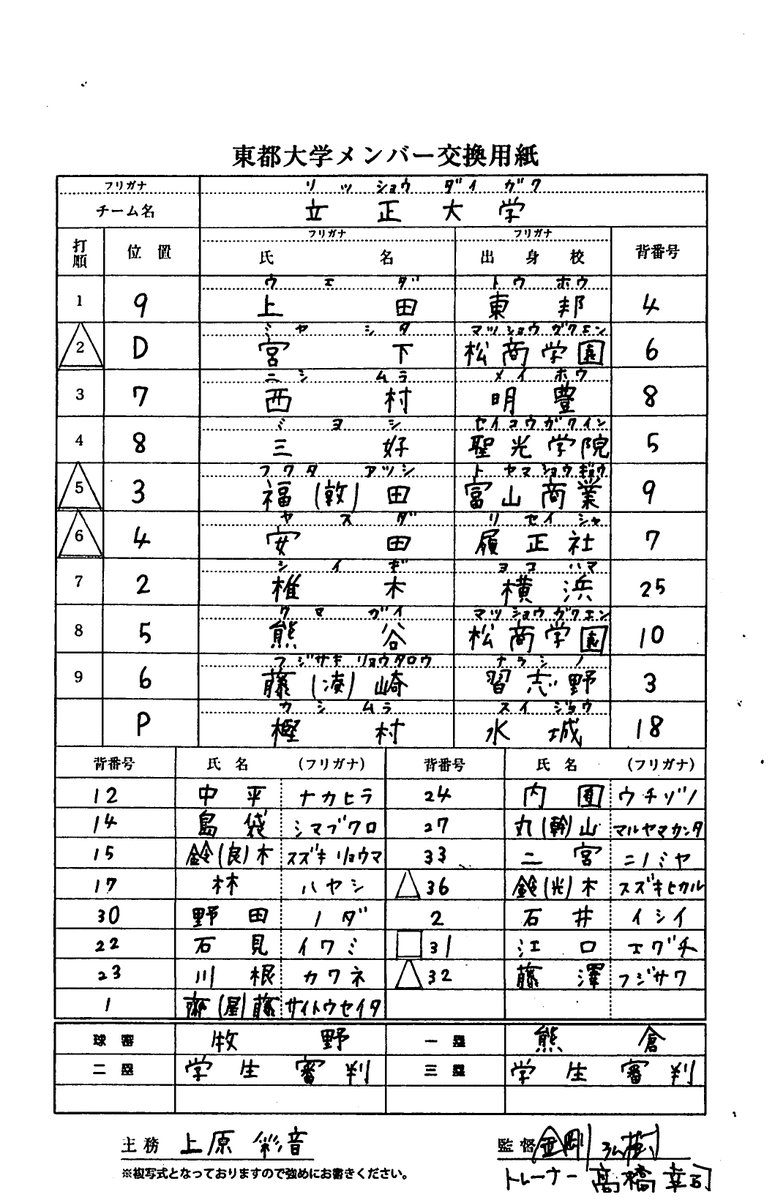 東都大学メンバー交換用紙
フリガナ リッショウダイガク
チーム名 立正大学
打順 位置 フリガナ 氏名 フリガナ 出身校 背番号
ウエダ トウホウ
1 9 上田 東邦 4
ミヤシタ マツショウガクエン
2 D 宮下 松商学園 6
ニシムラ メイホウ
3 7 西村 明豊 8
ミヨシ セイコウガクイン
4 8 三好 聖光学院 5
フクダアツシ トヤマショウギョウ
5 3 福(敦)田 富山商業 9
ヤスダ リセイシャ
6 4 安田 履正社 7
シイギ ヨコハマ
7 2 椎木 横浜 25
クマガイ マツショウガクエン
8 5 熊谷 松商学園 10
フジサキリョウタロウ ナラシノ
9 6 藤(凌)崎 習志野 3
カシムラ スイジョウ
P 樫村 水城 18
背番号 氏名 (フリガナ) 背番号 氏名 (フリガナ)
12 中平 ナカヒラ 24 内園 ウチゾノ
14 島袋 シマブクロ 27 丸(幹)山 マルヤマカンタ
15 鈴(良)木 スズキリョウマ 33 二宮 ニノミヤ
17 林 ハヤシ 36 鈴(光)木 スズキヒカル
30 野田 ノダ 2 石井 イシイ
22 石見 イワミ 31 江口 エグチ
23 川根 カワネ 32 藤澤 フジサワ
1 齋()藤 サイトウセイタ
球審 牧野 一塁 熊倉
二塁 学生審判 三塁 学生審判
主務 上原彩音 監督 金剛弘樹
※複写式となっておりますので強めにお書きください。 トレーナー 高橋幸司